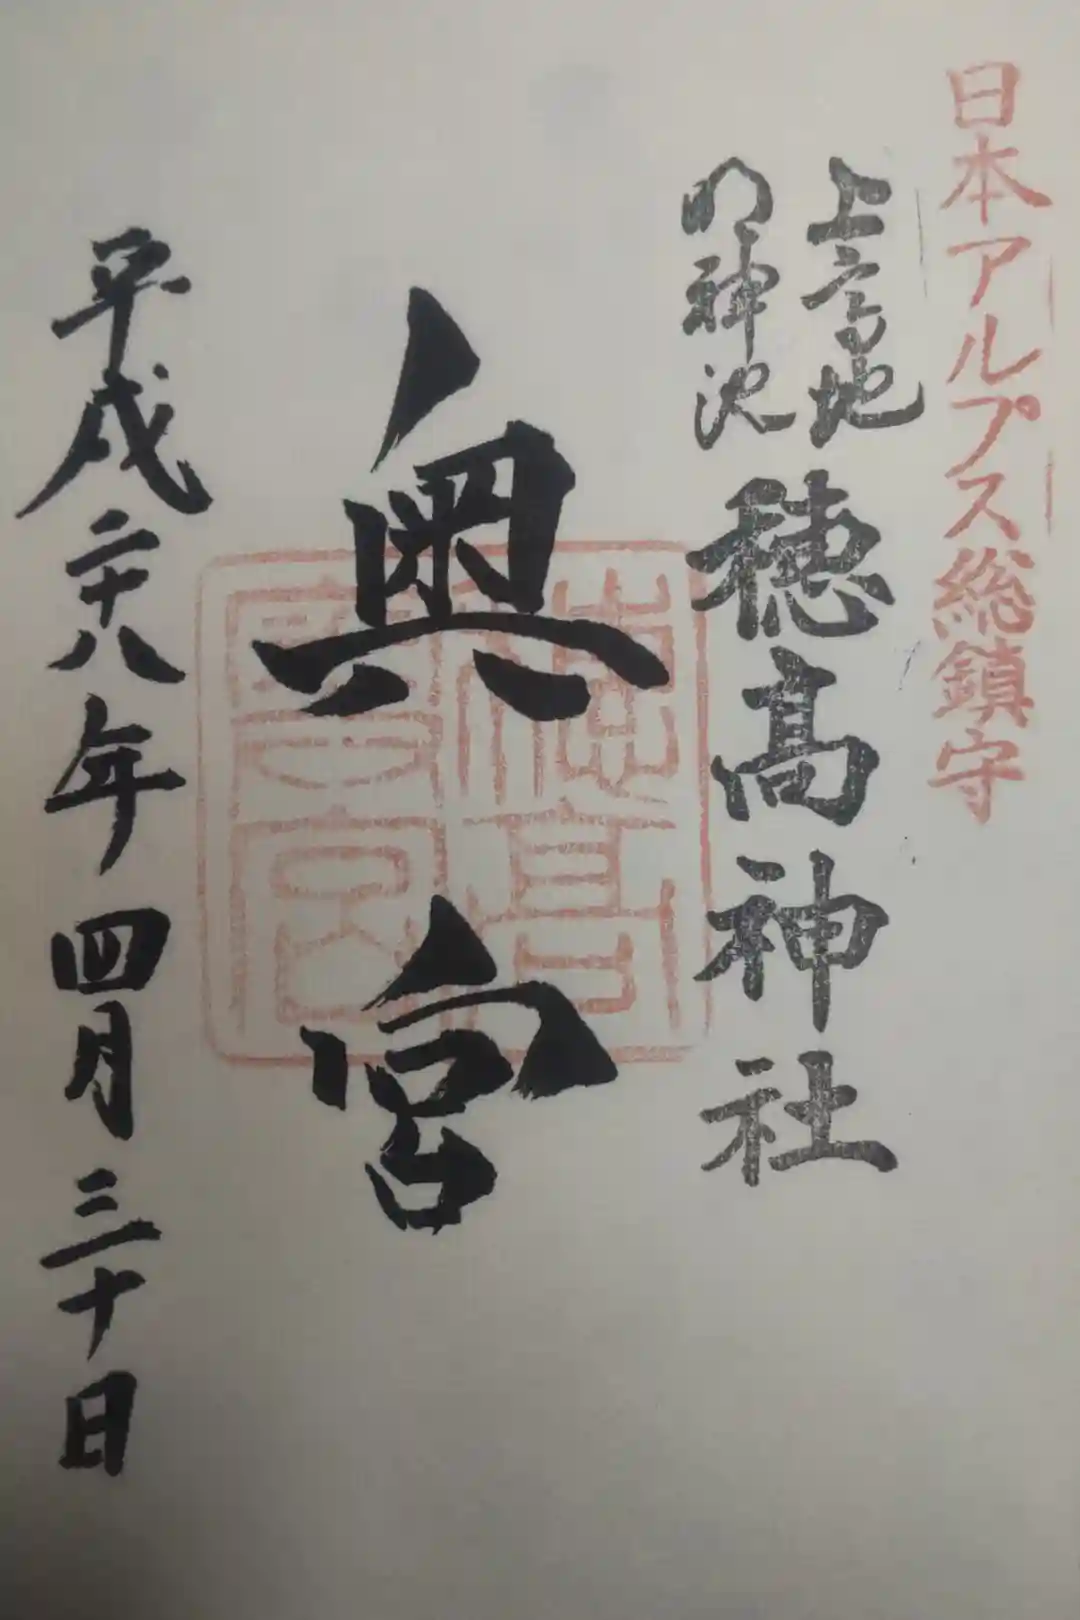 日本アルプス総鎮守
上高地
明神池
穂高神社
奥宮
穂高
奥宮
平成二十八年四月三十日